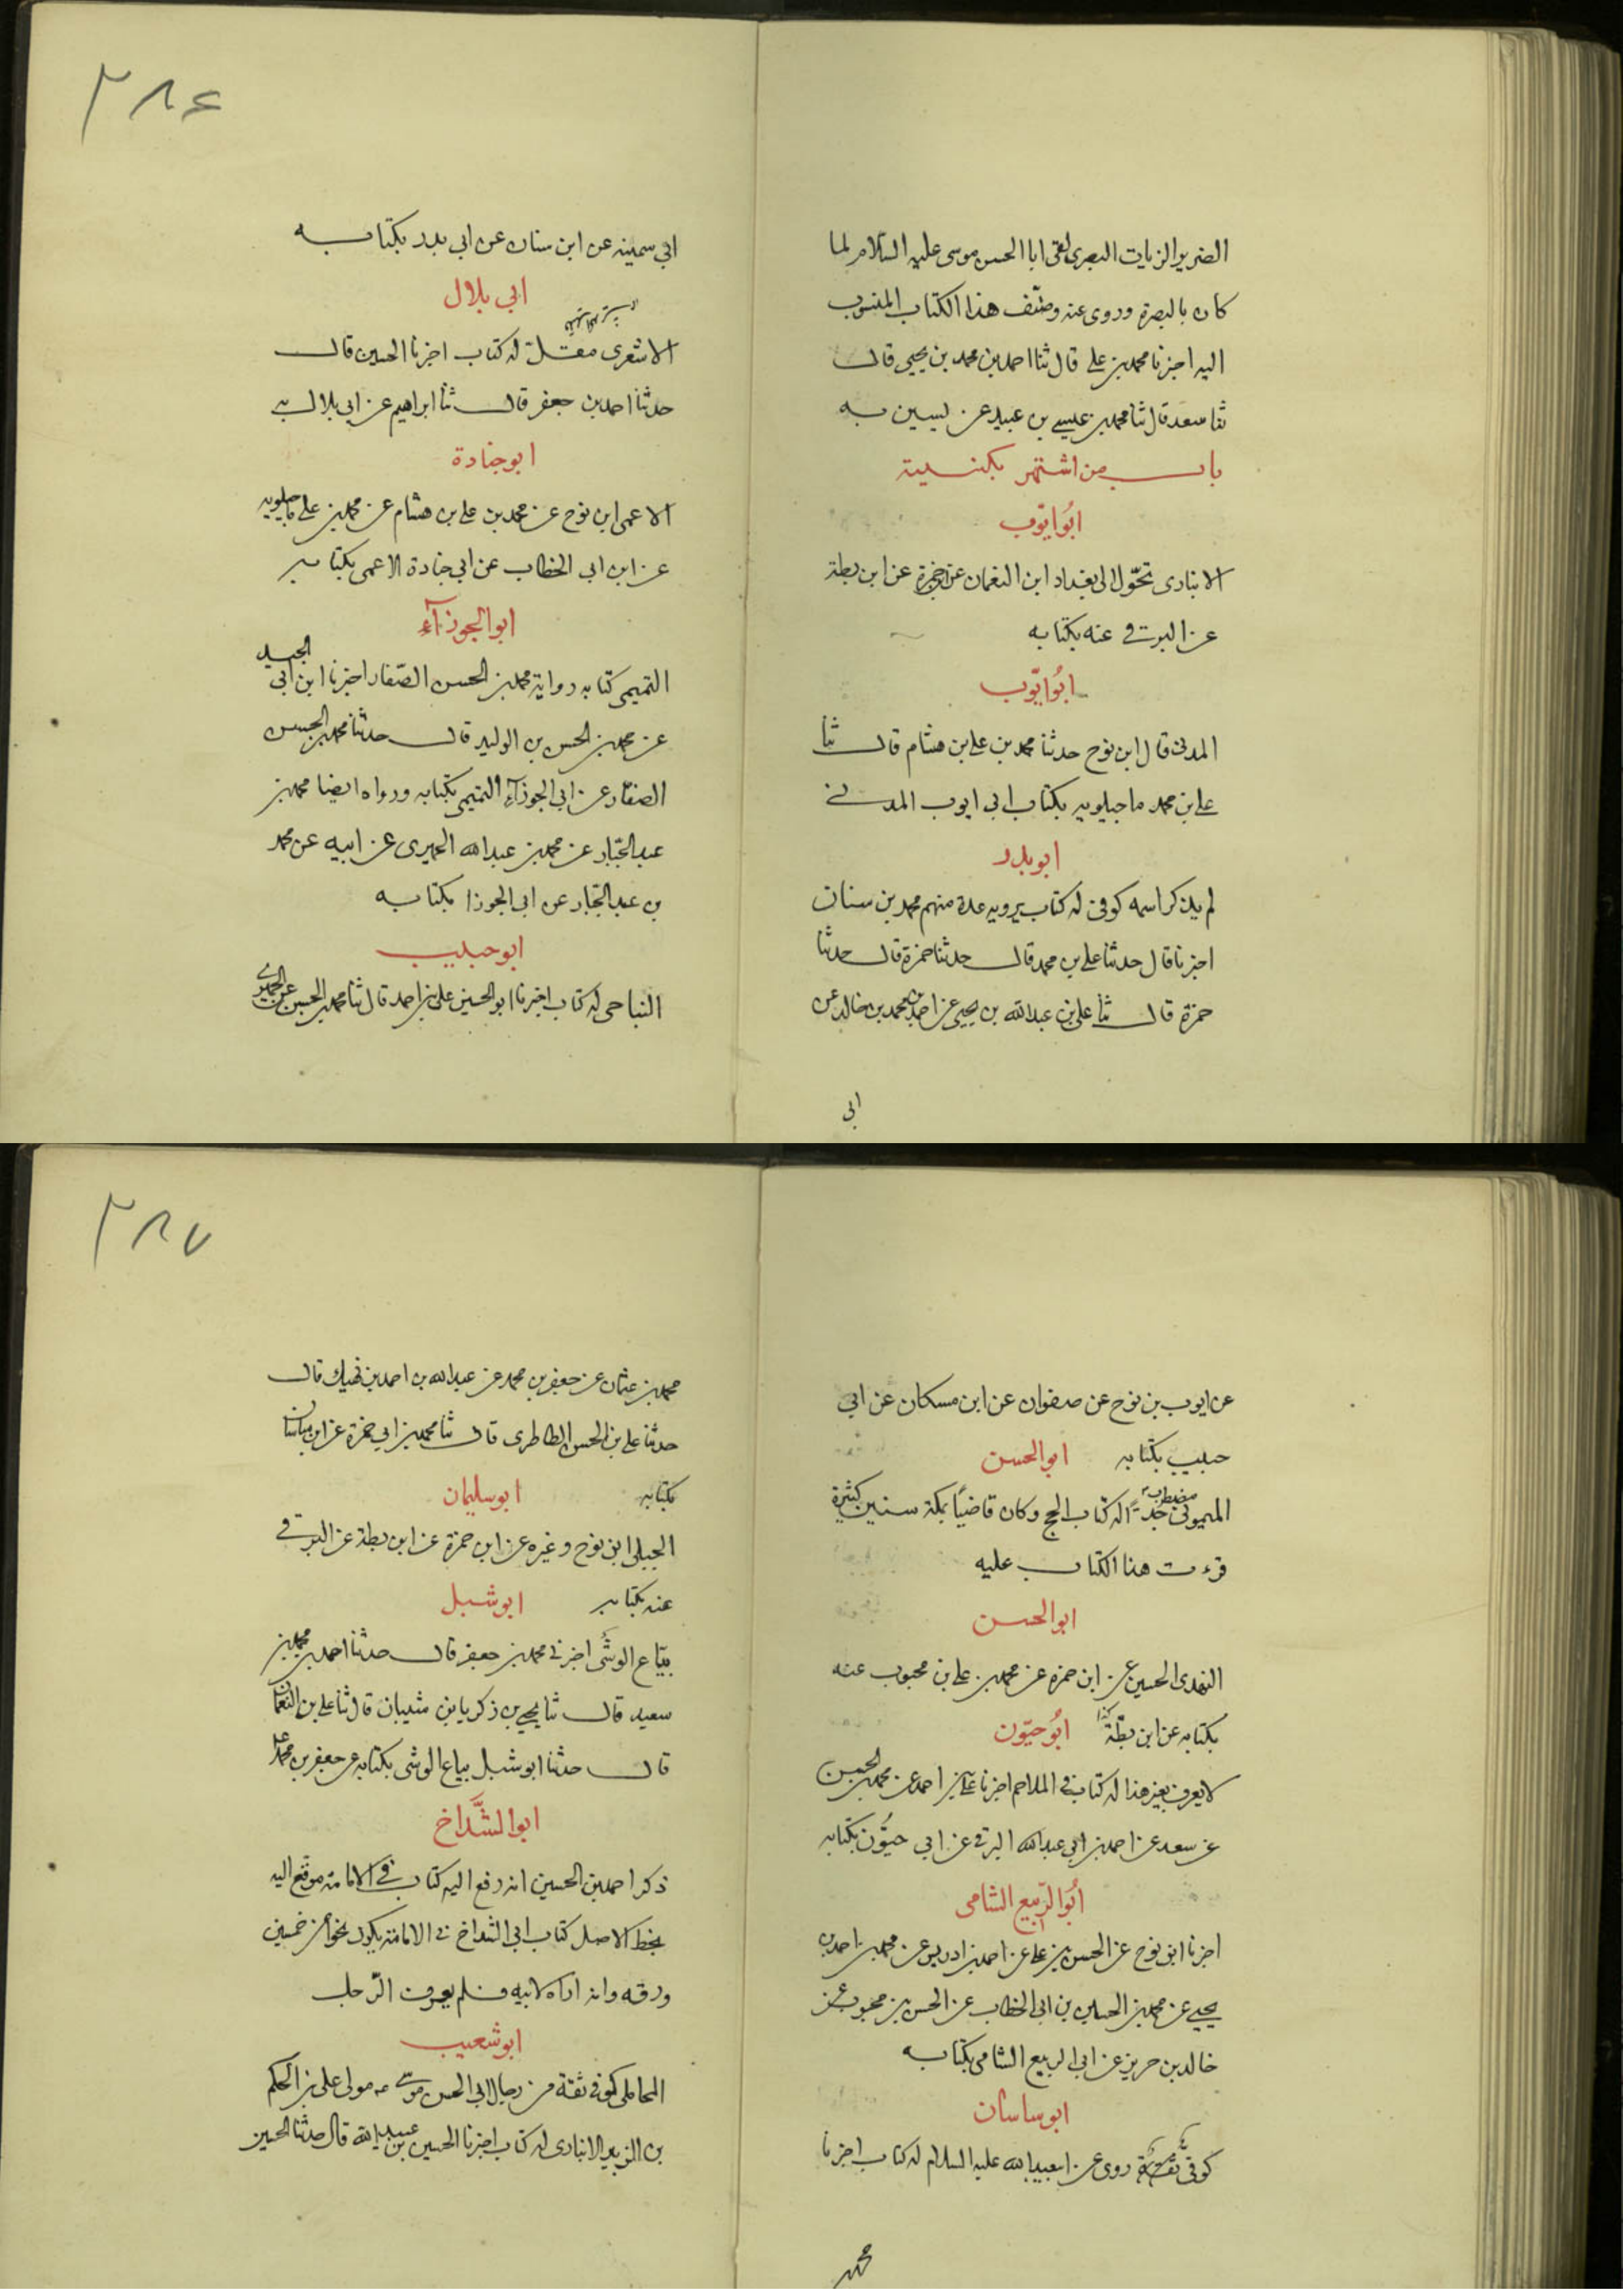 ٣٨٤
الضرير الزيات البصرى لقى ابا الحسن موسى عليه السلام لما
كان بالبصرة وروى عنه وصنّف هذا الكتاب المنسوب
اليه اخبرنا محمد بن على قال ثنا احمد بن محمد بن يحيى قال
ثنا سعد قال ثنا محمد بن عيسى بن عبيد عن يسين به
باب من اشتهر بكنيته
ابُو ايّوب
الانبارى تحّول الى بغداد ابن النعمان عن ابن حمزة عن ابن بطة
عن البرقى عنه بكتابه
ابُو ايّوب
المدنى قال ابن نوح حدثنا محمد بن على بن هشام قال ثنا
على بن محمد ماجيلويه بكتاب ابى ايوب المدنى
ابو بدر
لم يذكر اسمه كوفى له كتاب يرويه عدة منهم محمد بن سنان
اخبرنا قال حدثنا على بن محمد قال حدثنا حمزة قال حدثنا
حمزة قال ثنا على بن عبدالله بن يحيى عن احمد بن محمد بن خالد عن
ابى
ابى سمينه عن ابن سنان عن ابى بدر بكتابه
ابى بلال
الاشعرى مقلّ له كتاب اخبرنا الحسين قال
حدثنا احمد بن جعفر قال ثنا ابراهيم عن ابى بلال به
ابو جنادة
الاعمى ابن نوح عن محمد بن على بن هشام عن محمد بن على ماجيلويه
عن ابن ابى الخطاب عن ابى جنادة الاعمى بكتابه
ابو الجوزآء
التميمى كتابه رواية محمد بن الحسن الصّفار اخبرنا ابن ابى الجيد
عن محمد بن الحسن بن الوليد قال حدثنا محمد بن الحسن
الصفار عن ابى الجوزآء التميمى بكتابه ورواه ايضا محمد بن
عبد الجبّار عن محمد بن عبدالله الحميرى عن ابيه عن محمد
بن عبد الجبّار عن ابى الجوزا بكتابه
ابو حبيب
النباحى له كتاب اخبرنا ابو الحسين على بن احمد قال ثنا محمد بن الحسن عن الحميرى
٣٨٧
عن ايوب بن نوح عن صفوان عن ابن مسكان عن ابى
حبيب بكتابه ابو الحسن
الميمونى مضطرب جدّاً له كتاب الحج وكان قاضيًا بمكة سنين كثيرة
قرءت هذا الكتاب عليه
ابو الحسن
النهدى الحسين عن ابن حمزه عن محمد بن على بن محبوب عنه
بكتابه عن ابن بطّة كذا ابُو حيّون
لا يعرف بغير هذا له كتاب فى الملاحم اخبرنا على بن احمد عن محمد بن الحسن
عن سعد عن احمد بن ابى عبدالله البرقى عن ابى حيُّون بكتابه
ابُو الرّبيع الشامى
اخبرنا ابن نوح عن الحسن بن على عن احمد بن ادريس عن محمد بن احمد بن
يحيى عن محمد بن الحسين بن ابى الخطاب عن الحسن بن محبوب عن
خالد بن جرير عن ابى الربيع الشامى بكتابه
ابو ساسان
كوفىّ ثقة روى عن ابيعبدالله عليه السلام له كتاب اخبرنا
محمد
محمد بن عثمان عن جعفر بن محمد عن عبدالله بن احمد بن نهيك قال
حدثنا على بن الحسن الطاطرى قال ثنا محمد بن ابى حمزة عن ابى ساسان
بكتابه ابو سليمان
الجبلى ابن نوح وغيره عن ابن حمزة عن ابن بطة عن البرقى
عنه بكتابه ابو شبل
بيّاع الوشَى اخبرنى محمد بن جعفر قال حدثنا احمد بن محمد بن
سعيد قال ثنا يحيى بن زكريا بن شيبان قال ثنا على بن النعمان
قال حدثنا ابو شبل بياع الوشى بكتابه عن جعفر بن محمد ع
ابو الشَّداخ
ذكر احمد بن الحسين انه رفع اليه كتاب فى الامامة موقّع اليه
بخط الاصل كتاب ابى الشداخ فى الامامة يكون نحوا من خمسين
ورقه وانه اراه لابيه فلم يعرف الرّجل
ابو شعيب
المحاملى كوفى ثقة من رجال ابى الحسن موسى ع مولى على بن الحكم
بن الزبير الانبارى له كتاب اخبرنا الحسين بن عبيدالله قال حدثنا الحسين